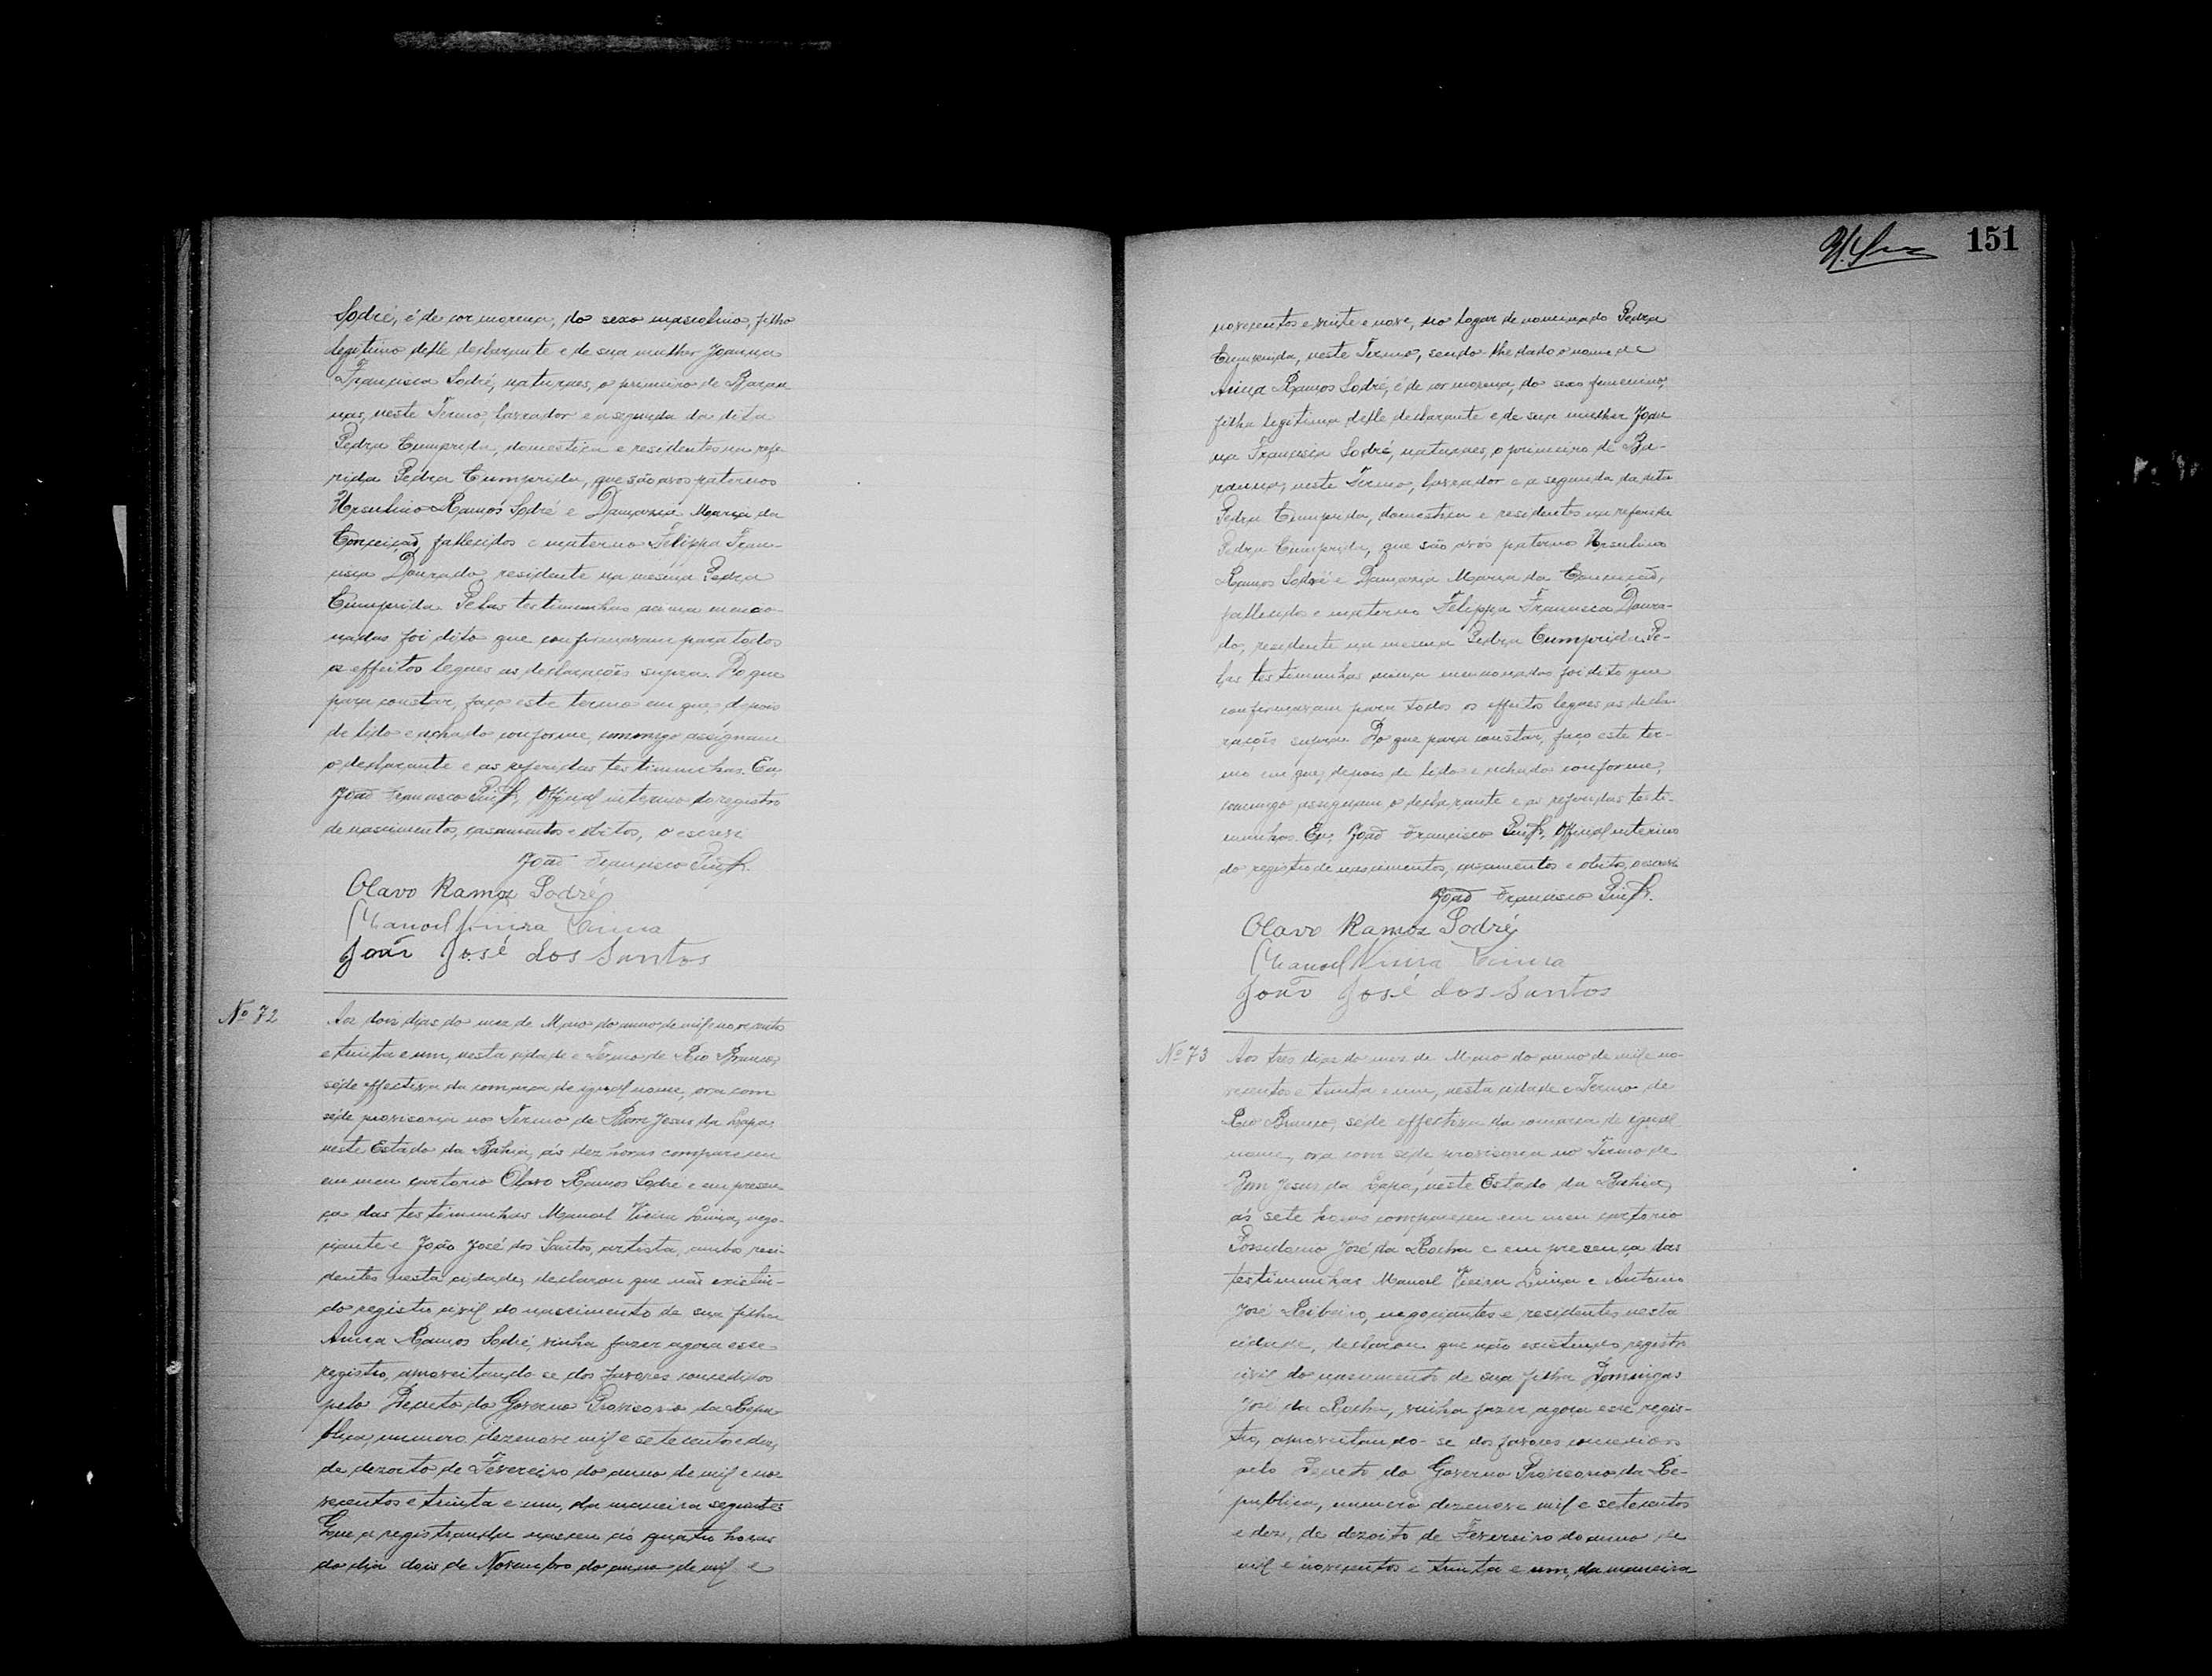 Sodré, é de cor morena, do sexo masculino, filho
legitimo delle declarante e de sua mulher Joanna
Francisca Sodré, naturaes, o primeiro de Barau
nas, neste Termo, lavrador e a segunda da dita
Pedra Cumprida, domestica e residentes na refe
rida Pedra Cumprida, que são avos paternos
Ursulino Ramos Sodré e Damazia Maria da
Conceição, fallecidos e materno Felippa Fran-
cisca Dourado, residente na mesma Pedra
Cumprida. Pelas testimunhas acima mencio-
nadas foi dito que confirmavam para todos
os effeitos legaes as declarações supra. Do que
para constar, faço este termo em que, depois
de lido e achado conforme, commigo assignam
o declarante e as referidas testimunhas. Eu
João Francisco, Official interino do registro
de nascimentos, casamentos e obitos, o escrevi
João Francisco
Olavo Ramos Sodré
Manoel Vieira
João José dos Santos
Nº 72
Aos dois dias do mez de Maio do anno de mil e novecentos
e trinta e um, nesta cidade e Termo de Rio Branco,
séde effectiva da comarca de igual nome, ora com
séde provisoria no Termo de Bom Jesus da Lapa,
neste Estado da Bahia, ás dez horas compareceu
em meu cartorio Olavo Ramos Sodré e em presen-
ça das testimunhas Manoel Vieira, nego-
ciante e João José dos Santos, artista, ambos resi-
dentes nesta cidade, declarou que não existin-
do registro civil do nascimento de sua filha
Anna Ramos Sodré, vinha fazer agora esse
registro, aproveitando-se dos favores concedidos
pelo Decreto do Governo Provisorio da Repu
blica, numero dezenove mil e setecentos e dez,
de dezoito de Fevereiro do anno de mil e no-
vecentos e trinta e um, da maneira seguinte:
Que a registranda nasceu ás quatro horas
do dia dois de Novembro do anno de mil e
151
novecentos e vinte e nove, no logar denominado Pedra
Cumprida, neste Termo, sendo-lhe dado o nome de
Anna Ramos Sodré, é de cor morena, do sexo femenino,
filha legitima delle declarante e de sua mulher Joan
na Francisca Sodré, naturaes, o primeiro de Ba-
raunas, neste Termo, lavrador e a segunda da dita
Pedra Cumprida, domestica e residentes na referida
Pedra Cumprida, que são avós paterno Ursulino
Ramos Sodré e Damazia Maria da Conceição,
fallecidos e materno Felippa Francisca Doura-
do, residente na mesma Pedra Cumprida. Pe-
las testimunhas acima mencionadas foi dito que
confirmavam para todos os effeitos legaes as decla-
rações supra. Do que para constar, faço este ter-
mo em que, depois de lido e achado conforme,
commigo assignam o declarante e as referidas testi-
munhas. Eu, João Francisco, Official interino
do registro de nascimentos, casamentos e obitos, o escrevi
João Francisco
Olavo Ramos Sodré
Manoel Vieira
João José dos Santos
Nº 73
Aos tres dias do mez de Maio do anno de mil e no-
vecentos e trinta e um, nesta cidade e Termo de
Rio Branco, séde effectiva da comarca de igual
nome, ora com séde provisoria no Termo de
Bom Jesus da Lapa, neste Estado da Bahia,
ás sete horas compareceu em meu cartorio
Possidonio José da Rocha e em presença das
testimunhas Manoel Vieira e Antonio
José Ribeiro, negociantes e residentes nesta
cidade, declarou que não existindo registro
civil do nascimento de sua filha Domingas
José da Rocha, vinha fazer agora esse regis-
tro, aproveitando-se dos favores concedidos
pelo Decreto do Governo Provisorio da Re-
publica, numero dezenove mil e setecentos
e dez, de dezoito de Fevereiro do anno de
mil e novecentos e trinta e um, da maneira